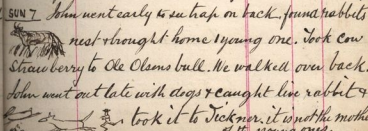 SUN 7 John went early to see trap on back, found rabbits
nest & brought home 1 young one. Took cow
Strawberry to Ole Olsons bull. We walked over back.
John went out late with dogs & caught live rabbit &
took it to Dickner. it is not the mother
of the young ones.